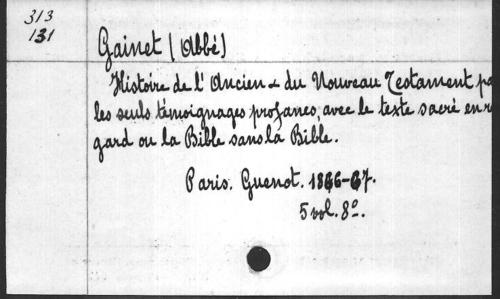 313
131
Gainet (Abbé)
Histoire de l'Ancien & du Nouveau Testament pa
les seuls témoignages profanes, avec le texte sacré en re
gard ou la Bible sans la Bible.
Paris. Guenot. 1866-67.
5 vol. 8º.